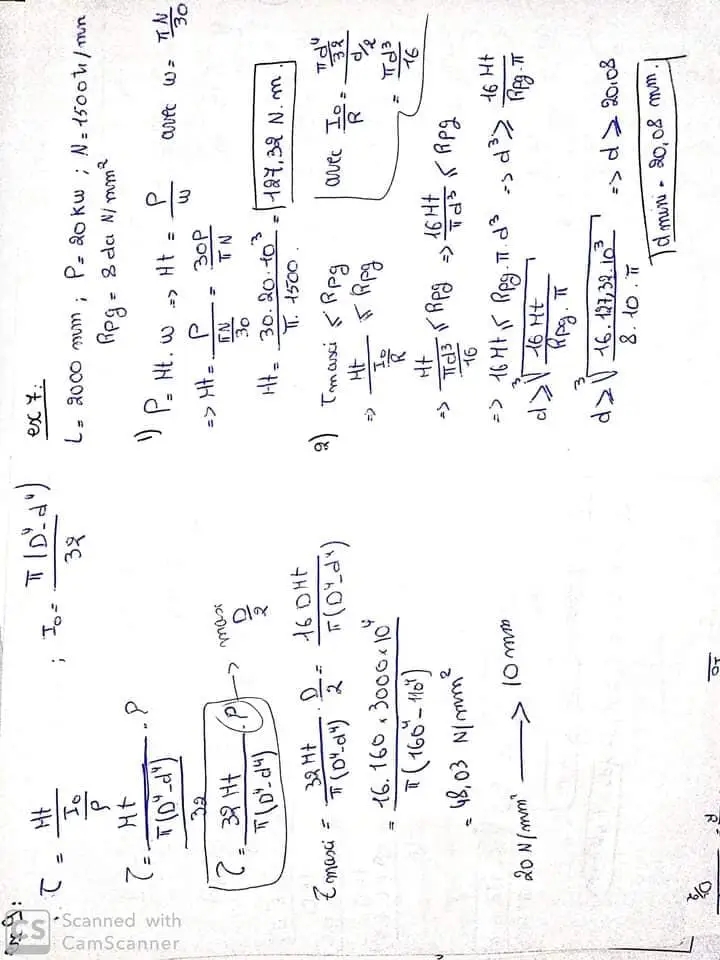 τ = Mt / (I₀/ρ) ; I₀ = π(D⁴-d⁴) / 32
τ = Mt / (π(D⁴-d⁴)/32) . ρ
τ = 32 Mt / π(D⁴-d⁴) . ρ → max D/2
τ maxi = 32Mt / π(D⁴-d⁴) . D/2 = 16 D Mt / π(D⁴-d⁴)
= 16. 160 × 3000 × 10⁴ / π(160⁴ - 110⁴)
= 48,03 N/mm²
20 N/mm² → 10 mm
ex 7:
L = 2000 mm ; P = 20 kw ; N = 1500 tr/mn
Rpg = 8 da N/mm²
1) P = Mt . ω => Mt = P/ω avec ω = πN/30
=> Mt = P / (πN/30) = 30P / πN
Mt = 30. 20. 10³ / π. 1500. = 127,32 N.m.
2) τ maxi ≤ Rpg
=> Mt / (I₀/R) ≤ Rpg avec I₀/R = (πd⁴/32) / (d/2) = πd³/16
=> Mt / (πd³/16) ≤ Rpg => 16Mt / πd³ ≤ Rpg
=> 16 Mt ≤ Rpg. π. d³ => d³ ≥ 16 Mt / Rpg. π
d ≥ ³√(16 Mt / Rpg. π)
d ≥ ³√(16. 127,32. 10³ / 8. 10. π) => d ≥ 20,08
d mini = 20,08 mm.
CS Scanned with
CamScanner